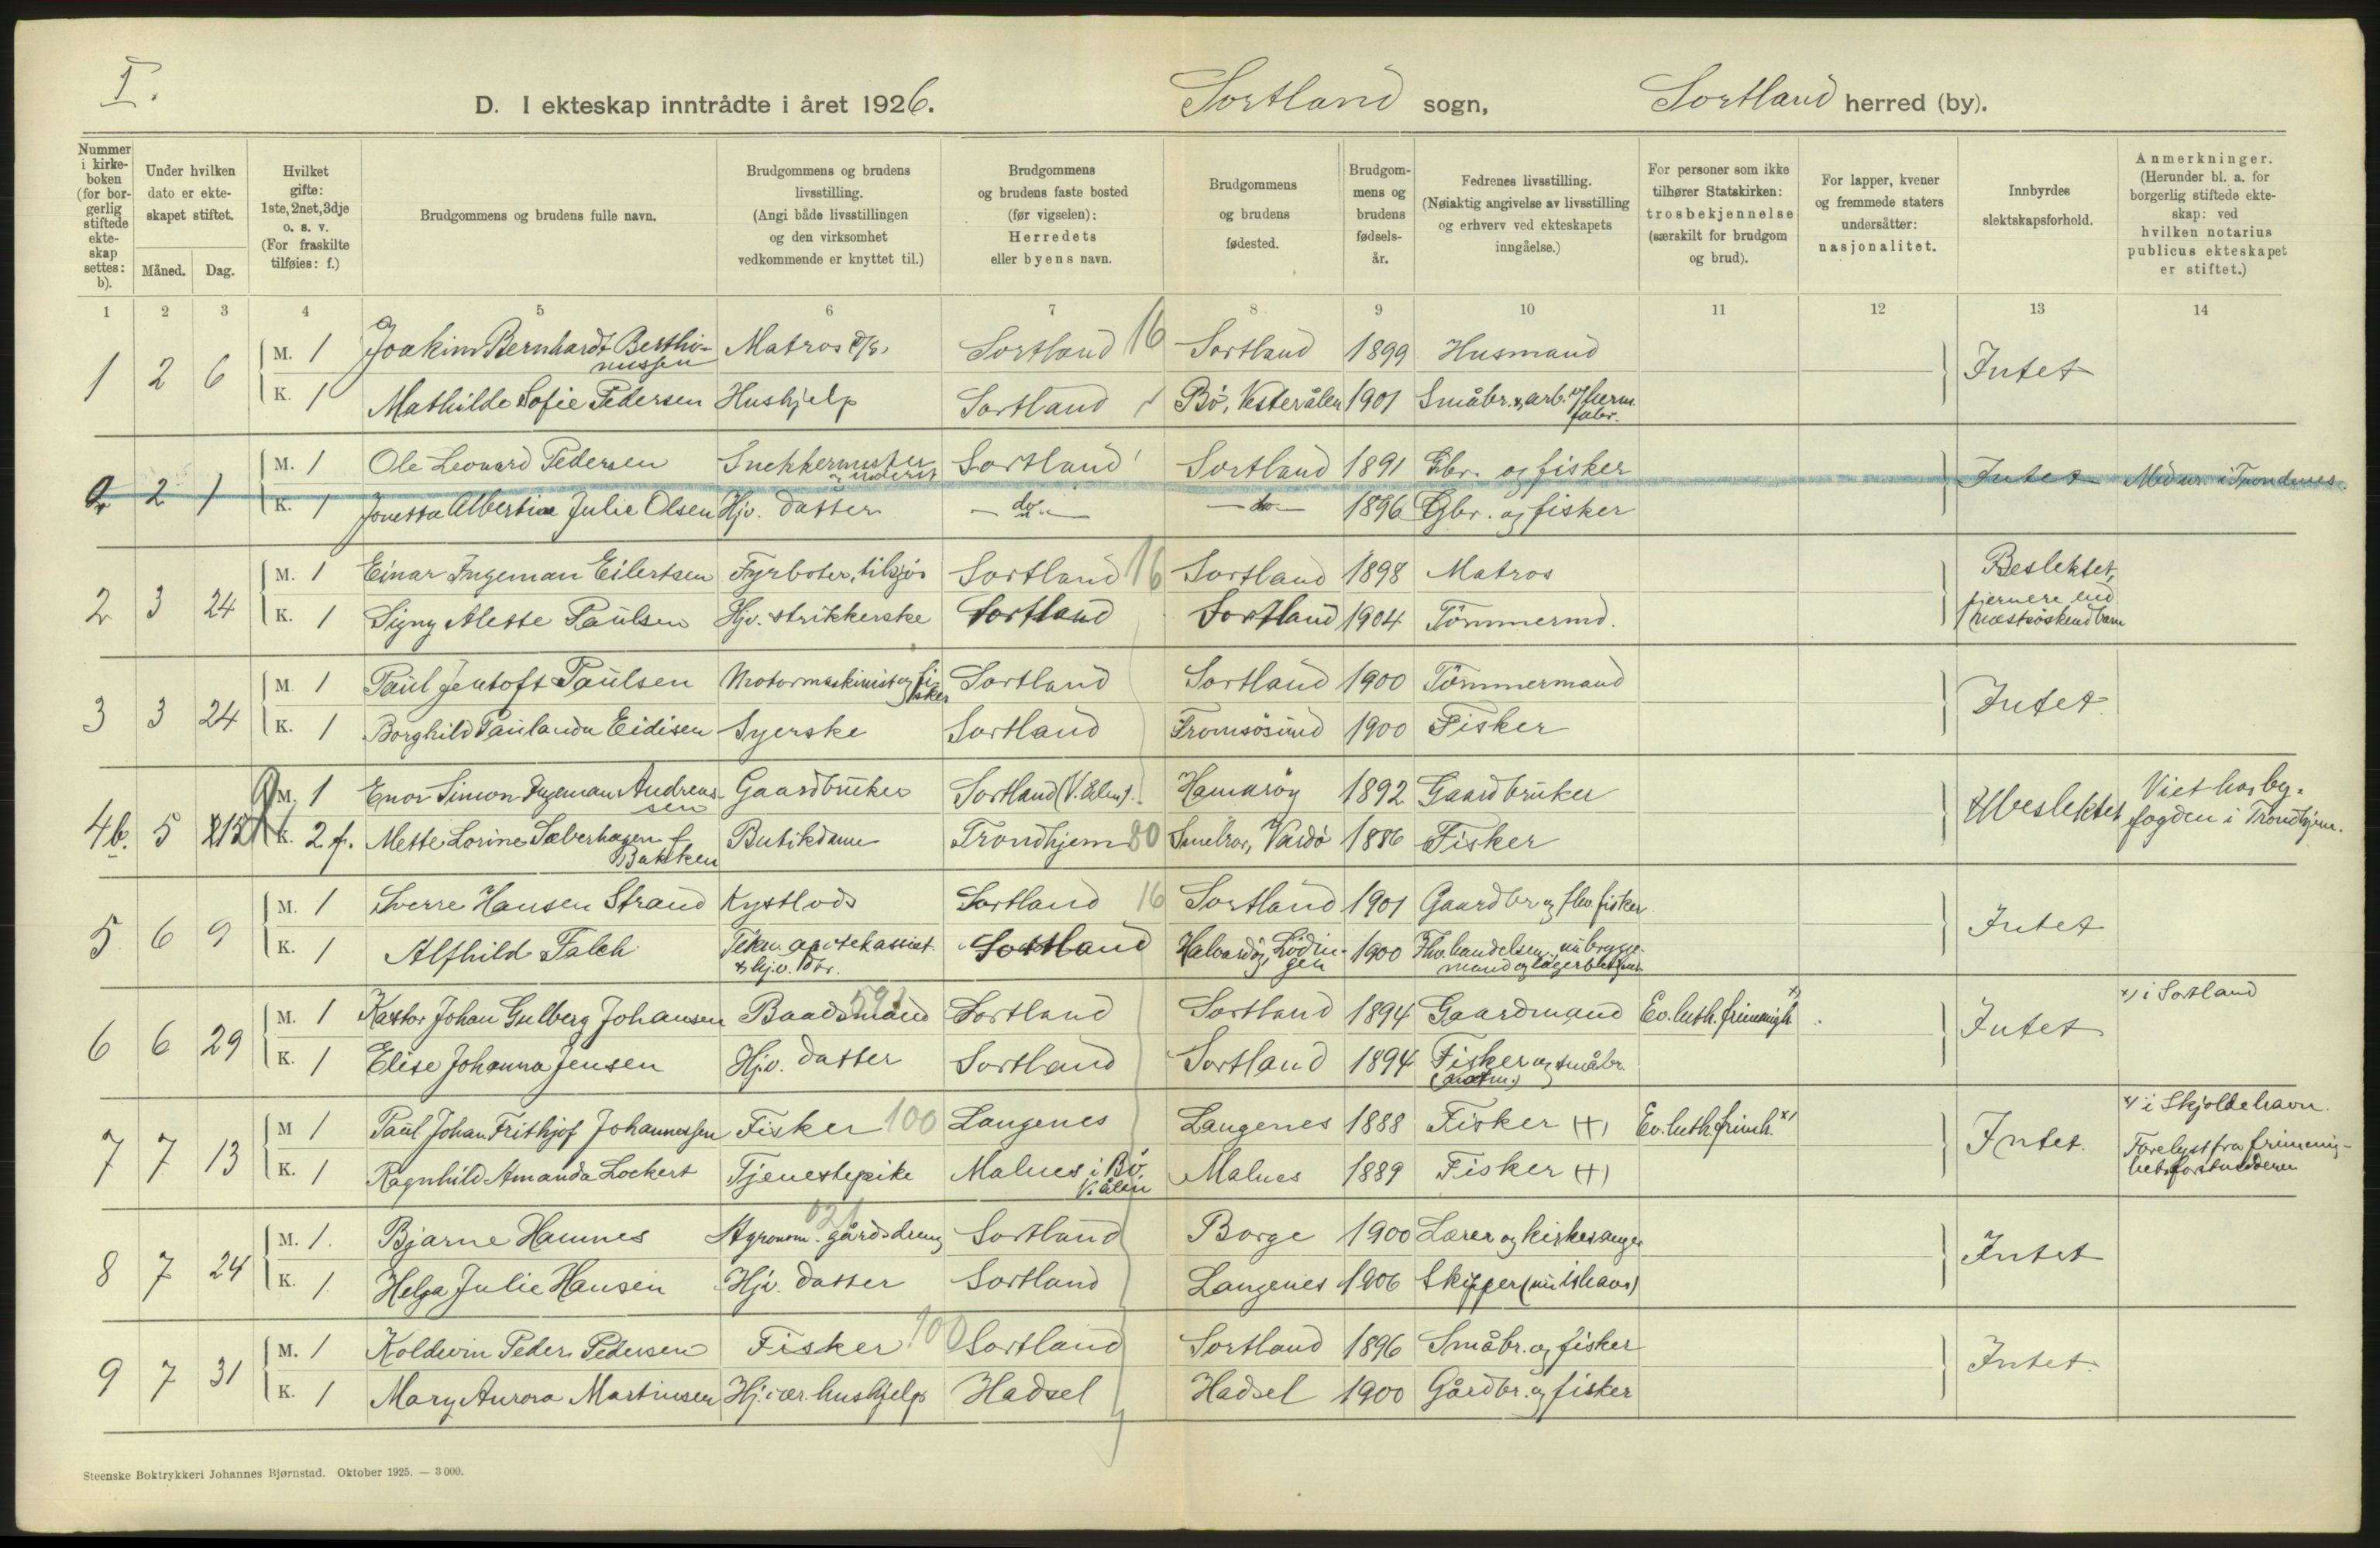 I.
D. I ekteskap inntrådte i året 1926. Sortland sogn, Sortland herred (by).
Nummer i kirkeboken (for borgerlig stiftede ekteskap settes: b).
Under hvilken dato er ekteskapet stiftet.
Måned. Dag.
Hvilket gifte: 1ste, 2net, 3dje o. s. v. (For fraskilte tilføies: f.)
Brudgommens og brudens fulle navn.
Brudgommens og brudens livsstilling. (Angi både livsstillingen og den virksomhet vedkommende er knyttet til.)
Brudgommens og brudens faste bosted (før vigselen): Herredets eller byens navn.
Brudgommens og brudens fødested.
Brudgommens og brudens fødselsår.
Fedrenes livsstilling. (Nøiaktig angivelse av livsstilling og erhverv ved ekteskapets inngåelse.)
For personer som ikke tilhører Statskirken: trosbekjennelse (særskilt for brudgom og brud).
For lapper, kvener og fremmede staters undersåtter: nasjonalitet.
Innbyrdes slektskapsforhold.
Anmerkninger. (Herunder bl. a. for borgerlig stiftede ekteskap: ved hvilken notarius publicus ekteskapet er stiftet.)
1 2 3 4 5 6 7 8 9 10 11 12 13 14
1 2 6 M. 1 Joakim Bernhardt Berthinussen Matros D/S. Sortland 16 Sortland 1899 Husmand Intet
K. 1 Mathilde Sofie Pedersen Hushjelp Sortland Bø, Vesterålen 1901 Småbr. & arb. herm. fabr.
2 2 1 M. 1 Ole Leonard Pedersen Snekkermester Sortland Sortland 1891 Gbr. og fisker Intet
K. 1 Jonetta Albertine Julie Olsen Hjv. datter — do — — do — 1896 Gbr. og fisker
2 3 24 M. 1 Einar Ingeman Eilertsen Fyrbøter, tilsjøs Sortland 16 Sortland 1898 Matros Beslektet, fjernere end næstsøskendbarn
K. 1 Signy Alette Paulsen Hjv. strikkerske Sortland Sortland 1904 Tømmermd.
3 3 24 M. 1 Paul Jentoft Paulsen Motormaskinist og fisker Sortland Sortland 1900 Tømmermand Intet
K. 1 Borghild Paulanda Eidisen Syerske Sortland Tromsøsund 1900 Fisker
4b. 5 M. 1 Enor Simon Ingeman Andreassen Gaardbruker Sortland Hamarøy 1892 Gaardbruker Ubeslektet Viet hos byfogden i Trondhjem.
K. 2 f. Mette Lorine Sæverhagen f. Bakken Butikdame Trondhjem 80 Vardø 1886 Fisker
5 6 9 M. 1 Sverre Hansen Strand Kystlods Sortland 16 Sortland 1901 Gaardbr. og fhv. fisker Intet
K. 1 Alfhild Falch Sortland Lødingen 1900
6 6 29 M. 1 Kastor Johan Gulberg Johansen Baadsmand Sortland Sortland 1894 Gaardmand Ev. luth. frimenigh. x) Intet x) i Sortland
K. 1 Elise Johanna Jensen Hjv. datter Sortland Sortland 1894 Fisker og småbr.
7 7 13 M 1 Paul Johan Frithjof Johannessen Fisker 100 Langenes Langenes 1888 Fisker (+) Ev. luth. frimh. x) Intet. x) i Skjoldehavn.
K. 1 Ragnhild Amanda Lockert Tjenestepike Malnes i Bø, V.ålen Malnes 1889 Fisker (+) Forelyst fra frimenighetsforstanderen
8 7 24 M. 1. Bjarne Hamnes Agronom. gårdsdreng Sortland Borge 1900 Lærer og kirkesanger Intet
K. 1 Helga Julie Hansen Hjv. datter Sortland Langenes 1906 Skipper (nu ishavs)
9 7 31 M. 1 Koldevin Peder Pedersen Fisker 100 Sortland Sortland 1896 Småbr. og fisker Intet.
K. 1 Mary Aurora Martinsen Hj. vær. hushjelp Hadsel Hadsel 1900 Gårdbr. og fisker
Steenske Boktrykkeri Johannes Bjørnstad. Oktober 1925. — 3 000.